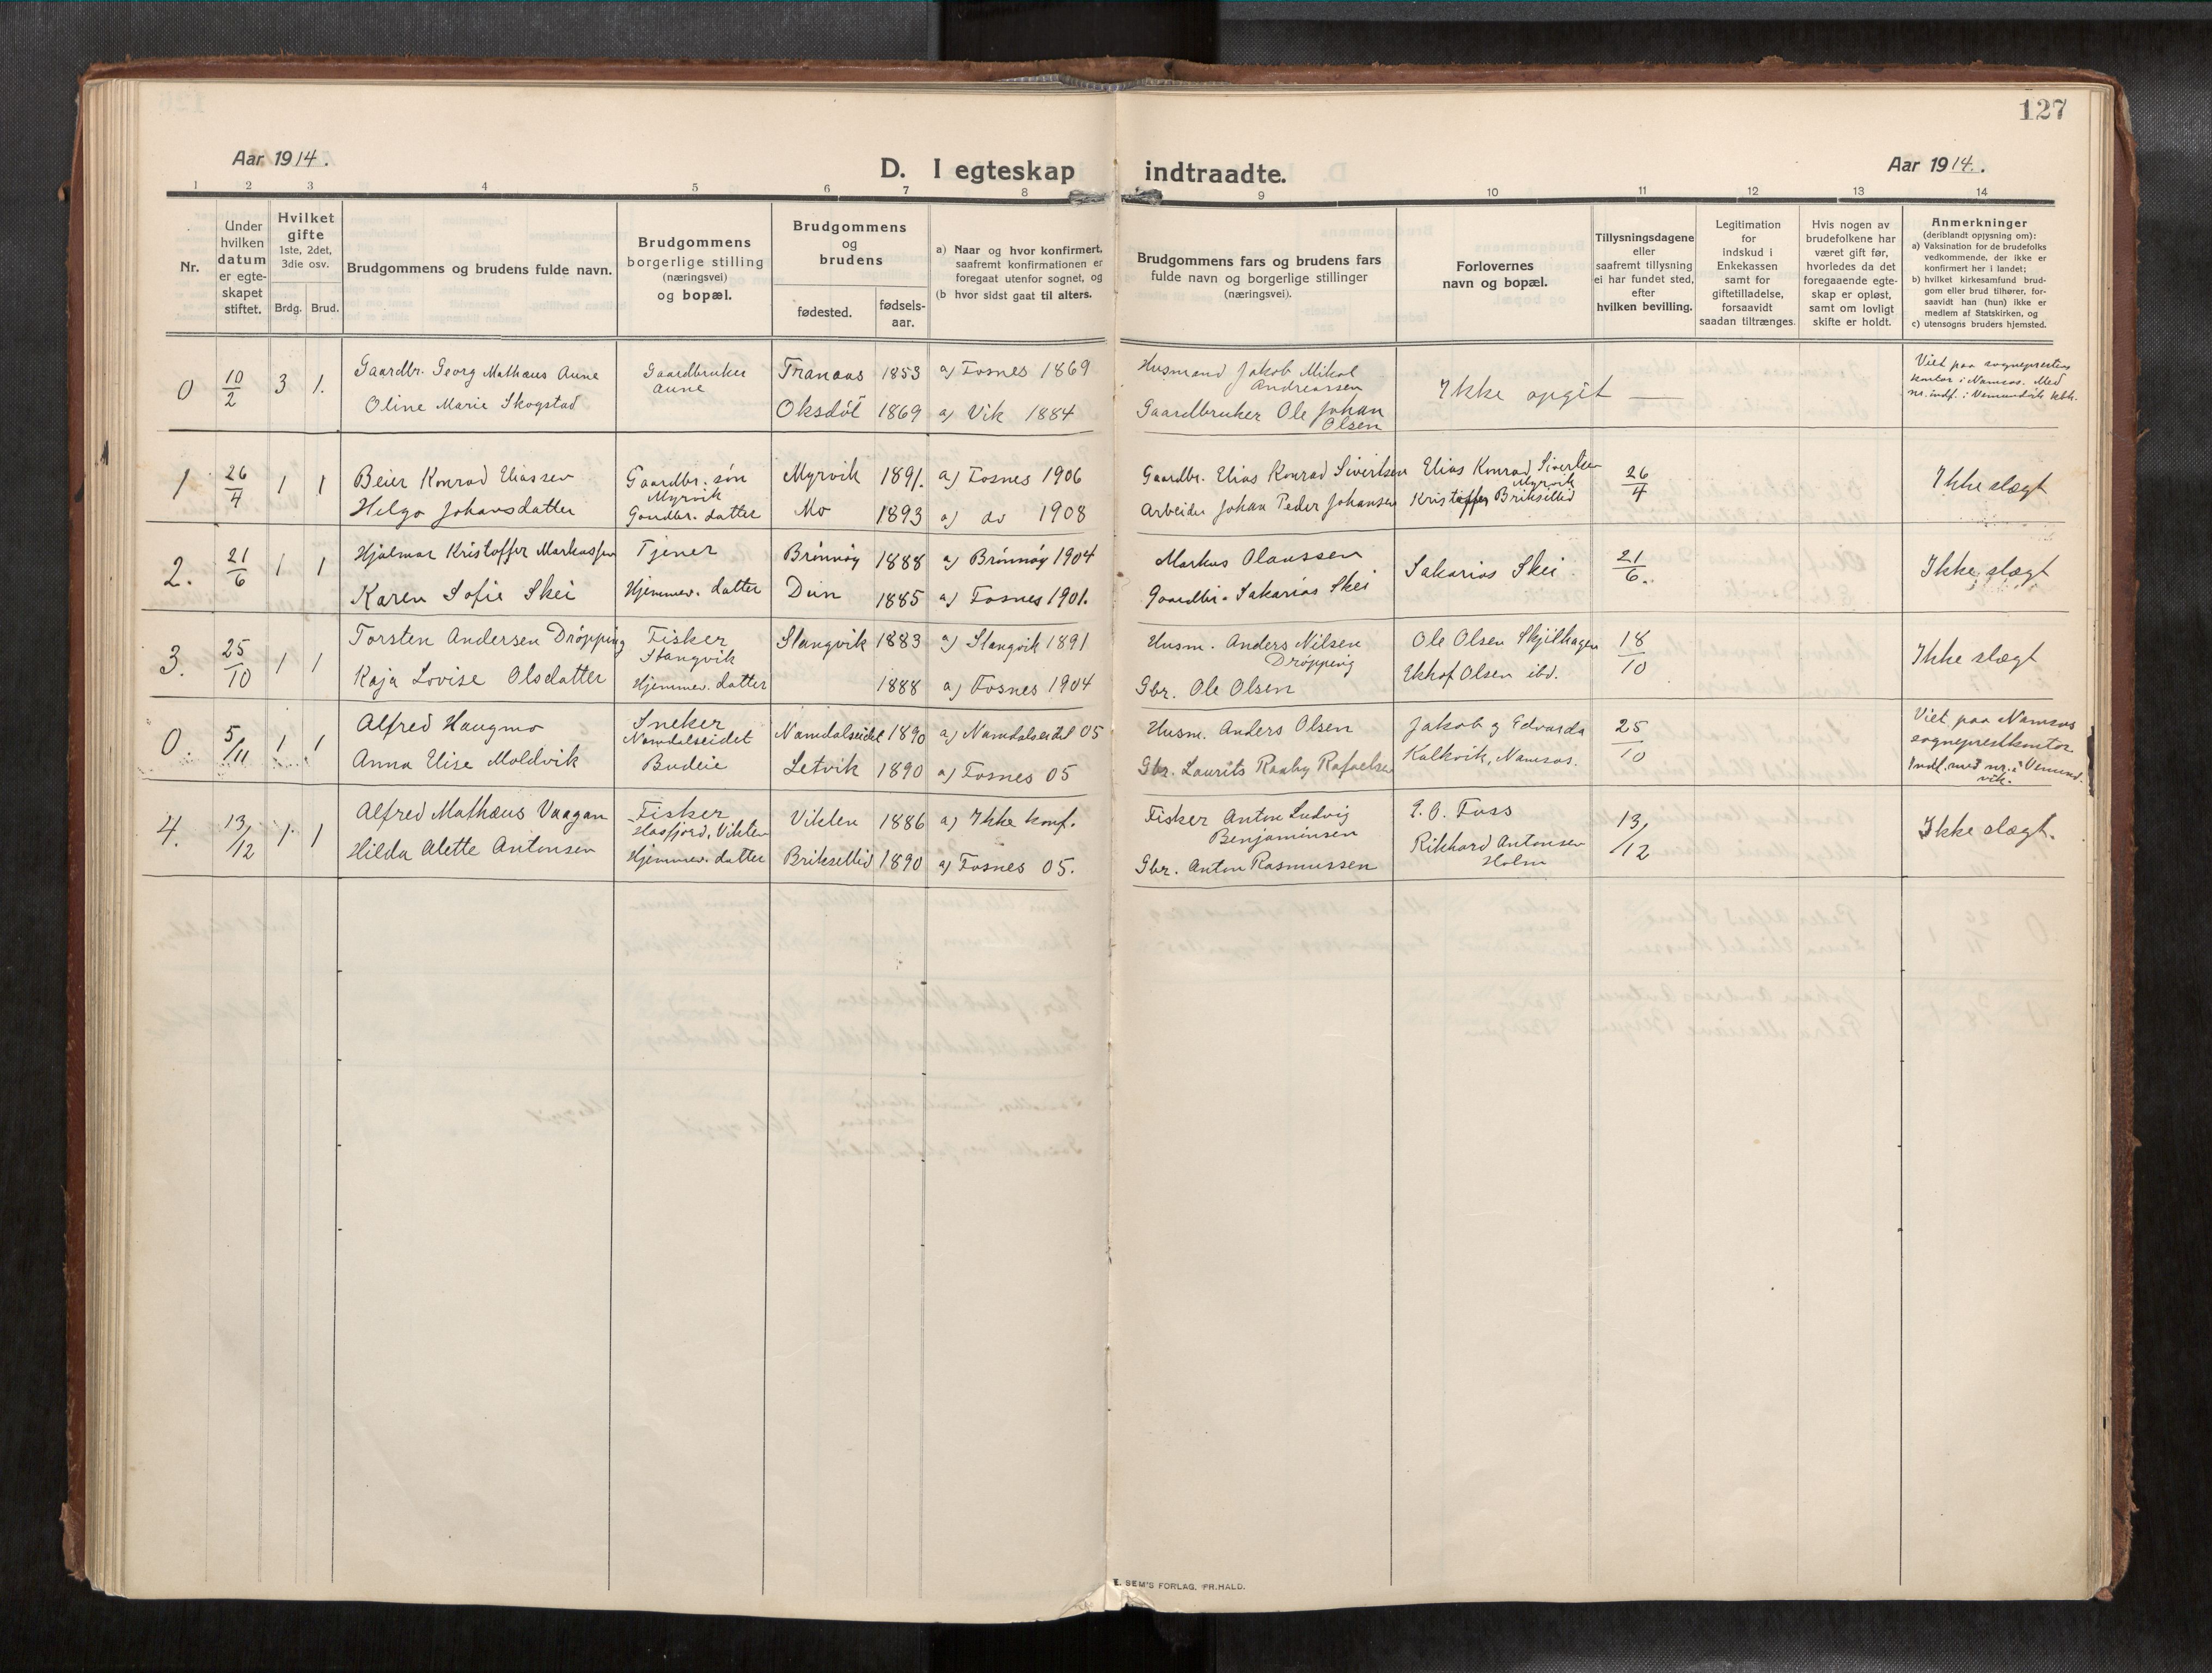 127
Aar 1914.
D. I egteskap indtraadte.
Aar 1914.
1 2 3 4 5 6 7 8 9 10 11 12 13 14
Nr.
Under
hvilken
datum
er egte-
skapet
stiftet.
Hvilket
gifte
1ste, 2det,
3die osv.
Brdg. Brud.
Brudgommens og brudens fulde navn.
Brudgommens
borgerlige stilling
(næringsvei)
og bopæl.
Brudgommens
og
brudens
fødested.
fødsels-
aar.
a) Naar og hvor konfirmert,
saafremt konfirmationen er
foregaat utenfor sognet, og
(b hvor sidst gaat til alters.
Brudgommens fars og brudens fars
fulde navn og borgerlige stillinger
(næringsvei).
Forlovernes
navn og bopæl.
Tillysningsdagene
eller
saafremt tillysning
ei har fundet sted,
efter
hvilken bevilling.
Legitimation
for
indskud i
Enkekassen
samt for
giftetilladelse,
forsaavidt
saadan tiltrænges.
Hvis nogen av
brudefolkene har
været gift før,
hvorledes da det
foregaaende egte-
skap er opløst,
samt om lovligt
skifte er holdt.
Anmerkninger
(deriblandt opjysning om):
a) Vaksination for de brudefolks
vedkommende, der ikke er
konfirmert her i landet;
b) hvilket kirkesamfund brud-
gom eller brud tilhører, for-
saavidt han (hun) ikke er
medlem af Statskirken, og
c) utensogns bruders hjemsted.
0 10/2 3 1.
Gaardbr. Georg Mathæus Aune
Oline Marie Skogstad
Gaardbruker
Aune
Tranaas 1853 a) Fosnes 1869
Oksdöl 1869 a) Vik 1884
Husmand Jakob Mikal
Andreassen
Gaardbruker Ole Johan
Olsen
Ikke opgit
Viet paa sogneprestens
kontor i Namsos. Med
nr. indf. i Vemundvik kbk.
1 26/4 1 1
Beier Konrad Eliassen
Helga Johansdatter
Gaardbr. søn
Myrvik
Gaardbr. datter
Myrvik 1891. a) Fosnes 1906
Mo 1893 a) do 1908
Gaardbr. Elias Konrad Sivertsen
Arbeider Johan Peder Johansen
Elias Konrad Sivertsen
Myrvik
Kristoffer Briksellid
26/4
Ikke slægt
2. 21/6 1 1
Hjalmar Kristoffer Markussen
Karen Sofie Skei
Tjener
Hjemmev. datter
Brønnøy 1888 a) Brønnøy 1904
Dun 1885 a) Fosnes 1901.
Markus Olaussen
Gaardbr. Sakarias Skei
Sakarias Skei
21/6.
Ikke slægt
3. 25/10 1 1
Torsten Andersen Drøpping
Kaja Lovise Olsdatter
Fisker
Stangvik
Hjemmev. datter
Stangvik 1883 a) Stangvik 1891
1888 a) Fosnes 1904
Husm. Anders Nilsen
Drøpping
Gbr. Ole Olsen
Ole Olsen Skjilhagen
Ekhof Olsen ibd.
18/10
Ikke slægt
0. 5/11 1 1
Alfred Haugmo
Anna Elise Moldvik
Sneker
Namdalseidet
Budeie
Namdalseidet 1890 a) Namdalseidet 05
Letvik 1890 a) Fosnes 05
Husm. Anders Olsen
Gbr. Laurits Raaby Rafaelsen
Jakob g Edvarda
Kalkvik, Namsos.
25/10
Viet paa Namsos
sogneprestkontor
Indf. med nr. i Vemund-
vik.
4. 13/12 1 1
Alfred Mathæus Vaagan
Hilda Alette Antonsen
Fisker
Hasfjord, Vikten
Hjemmev. datter
Vikten 1886 a) Ikke konf.
Briksellid 1890 a) Fosnes 05.
Fisker Anton Ludvig
Benjaminsen
Gbr. Anton Rasmussen
P. O. Fuss
Rikhard Antonsen
Holm
13/12
Ikke slægt.
E. SEM'S FORLAG. FR.HALD.